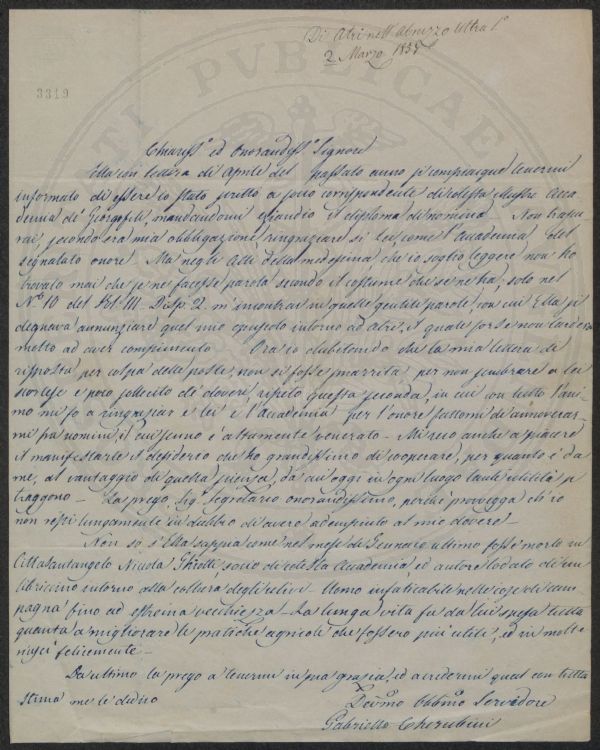 Di Atri nell'Abruzzo Ultra 1°
2. Marzo 1857
3319
Chiariss.° ed Onorandiss.° Signore
Ella con lettera di Aprile del passato anno si compiacque tenermi
informato di essere io stato scritto a socio corrispondente di cotesta illustre Acca-
demia de' Georgofili, mandandomi eziandio il diploma di nomina. Non trascu-
rai, secondo era mia obbligazione, ringraziare sì lei come l'Accademia del
segnalato onore. Ma negli atti della medesima che io soglio leggere non ho
trovato mai che se ne facesse parola secondo il costume che se ne ha; solo nel
N° 10 del Vol. III. Disp. 2. m'incontrai in quelle gentili parole, con cui Ella si
degnava annunziare quel mio opuscolo intorno ad Atri, il quale forse non tarderà
molto ad aver compimento. Ora io dubitando che la mia lettera di
risposta per colpa delle poste, non si fosse smarrita, per non sembrare a lei
scortese e poco sollecito de' doveri, ripeto questa seconda, in cui con tutto l'ani-
mo mi fo a ringraziar e lei e l'Accademia per l'onore fattomi di annoverar-
mi fra uomini, il cui senno è altamente venerato. Mi reco anche a piacere
il manifestarle il desiderio che ho grandissimo di cooperare, per quanto è da
me, al vantaggio di quella scienza, da cui oggi in ogni luogo tante utilità si
traggono. La prego, Sig. Segretario onorandissimo, perchè provvegga ch'io
non resti lungamente in dubbio di avere adempiuto al mio dovere.
Non so s'Ella sappia come nel mese di Gennaro ultimo fosse morto in
Cittasantangelo Nicola Ghiotti, socio di cotesta Accademia ed autore lodato di un
libriccino intorno alla coltura degli olivi. Uomo infaticabile nelle cose di cam-
pagna fino ad estrema vecchiezza. La lunga vita fu da lui spesa tutta
quanta a migliorare le pratiche agricole che fossero più utili, ed in molte
riuscì felicemente.
Da ultimo la prego a tenermi in sua grazia, ed a credermi qual con tutta
stima me le dedico
Devmo Obbmo Servidore
Gabriello Cherubini